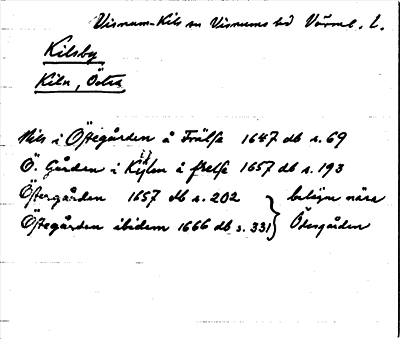 Visnum-Kils sn Visnums hd Värml. l.
Kilsby
Kiln, Östra
Nils i Östegården å Frälse 1647 db s. 69
Ö. Gården i Kijlen å frelse 1657 db s. 193
Östergården 1657 db s. 202 belägen nära
Östegården ibidem 1666 db s. 331 Ödesgården